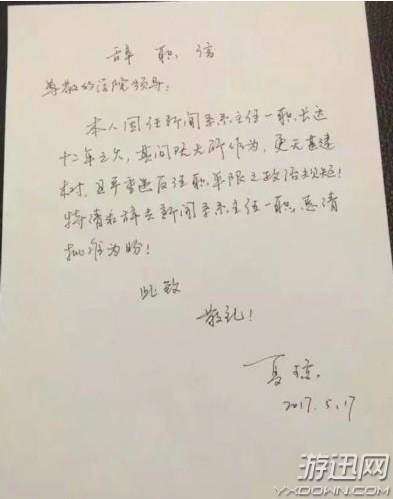 辞职信
尊敬的学院领导：
本人因任新闻系系主任一职，长达
十二年之久，其间既无所作为，更无建
树，且严重违反任职年限之政治规矩！
特请求辞去新闻系系主任一职，恳请
批准为盼！
此致
敬礼！
夏琼
2017.5.17
游迅网
YXDOWN.COM